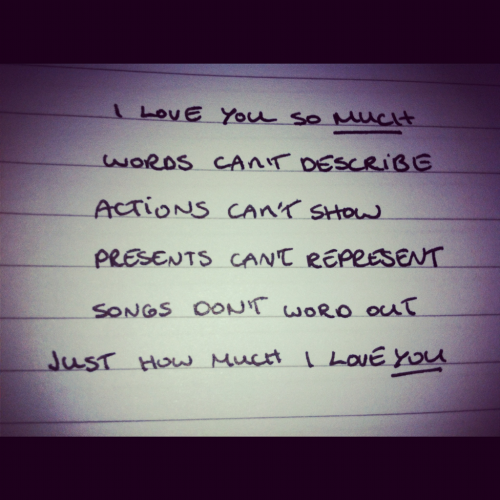 I LOVE YOU SO MUCH
WORDS CAN'T DESCRIBE
ACTIONS CAN'T SHOW
PRESENTS CAN'T REPRESENT
SONGS DON'T WORD OUT
JUST HOW MUCH I LOVE YOU